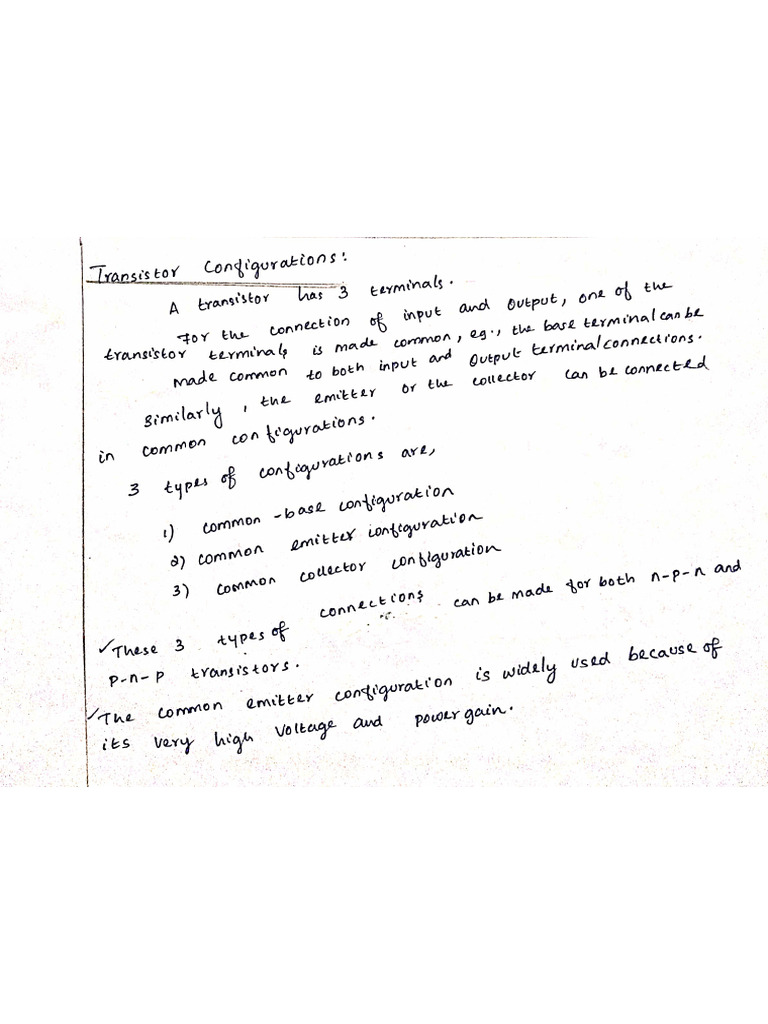 Transistor Configurations:
A transistor has 3 terminals.
For the connection of input and output, one of the
transistor terminals is made common, eg., the base terminal can be
made common to both input and output terminal connections.
Similarly, the emitter or the collector can be connected
in common configurations.
3 types of configurations are,
1) common-base configuration
2) common emitter configuration
3) common collector configuration
✓These 3 types of connections can be made for both n-p-n and
p-n-p transistors.
✓The common emitter configuration is widely used because of
its very high voltage and power gain.